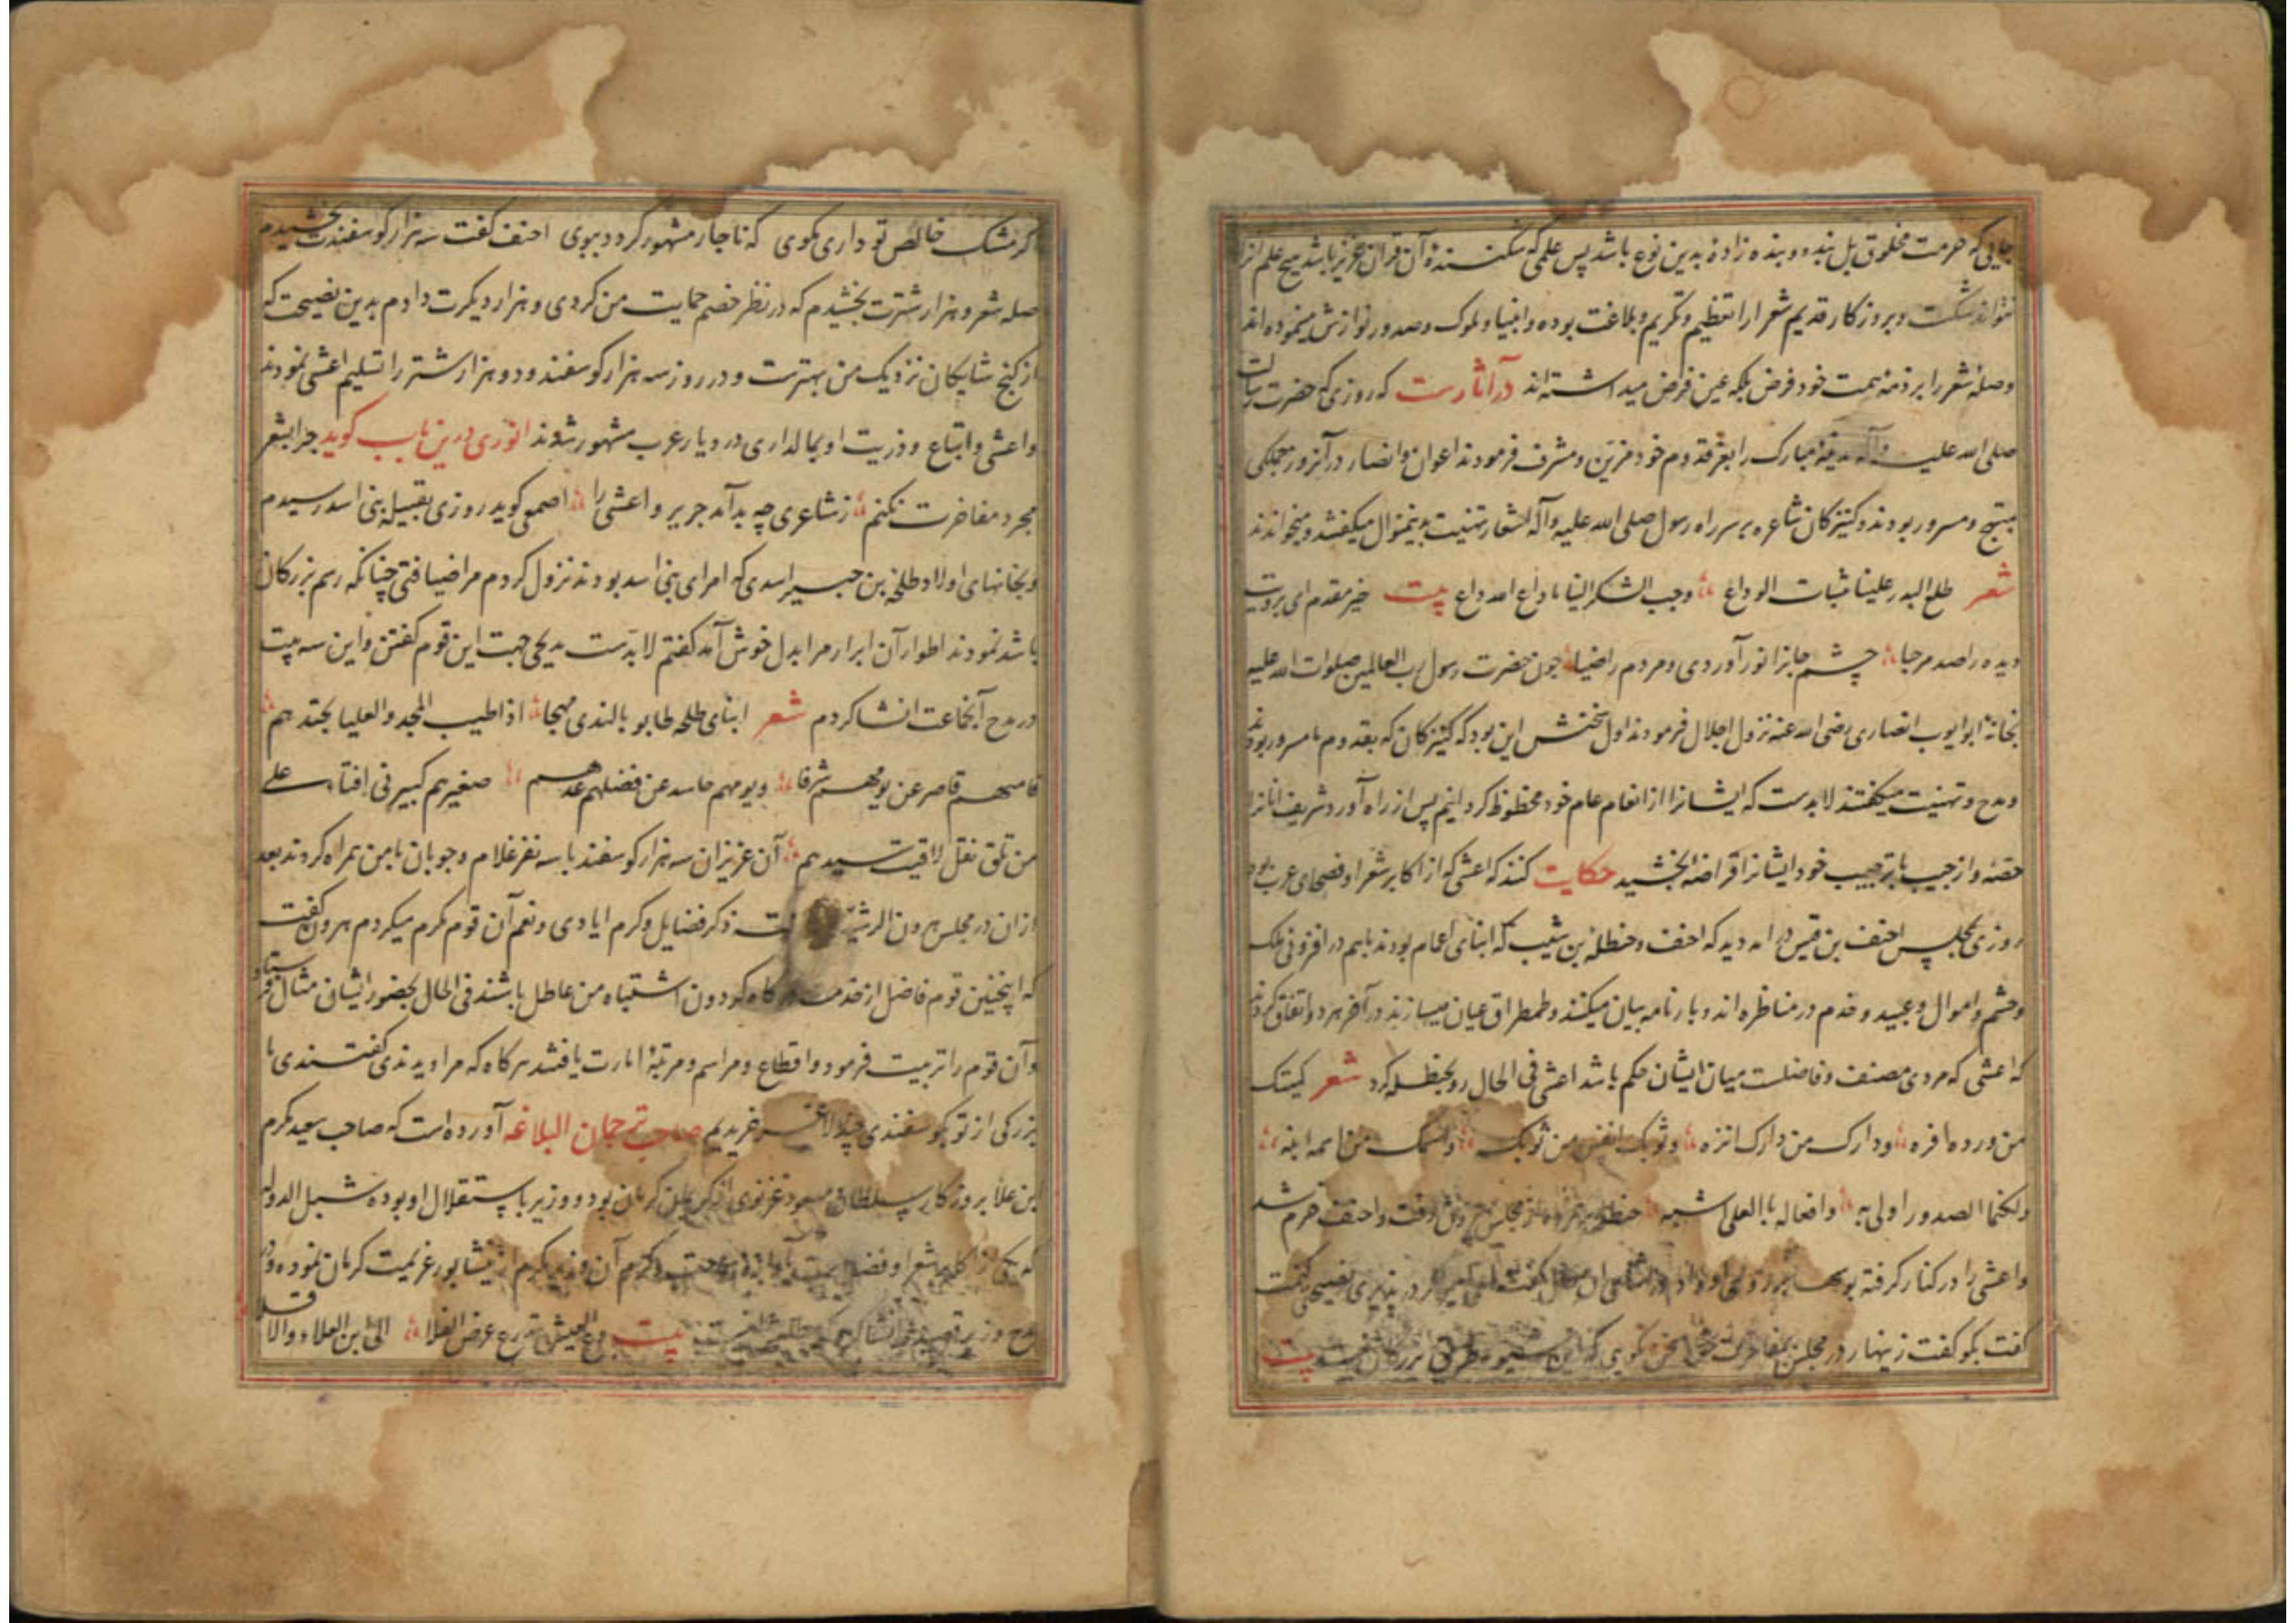 جایی که حرمت مخلوق بل بنده و بنده زاده بدین نوع باشد پس علمی که شکننده آن قران عزیز باشد هیچ علم انرا
نتواند شکست و بروزکار قدیم شعرا را تعظیم و تکریم و بلاغت بوده و انبیا و ملوک و صدور نوازش میفرموده اند
وصلهٔ شعر را بر ذمه همت خود فرض بلکه عین فرض میداشته اند در آثارست که روزی که حضرت رسالت
صلی الله علیه وآله مدینه مبارک را بعز قدوم خود مزین و مشرف فرمودند اعوان وانصار در آنروز جملکی
مبتهج و مسرور بودند و کنیزکان شاعره بر سر راه رسول صلی الله علیه وآله اشعار تهنیت بدینمنوال میکفتند و میخواندند
شعر طلع البدر علینا ثنیات الوداع وجب الشکر الینا ما داع لله داع بیت خیر مقدم ای بر رویت
دیده را صد مرحبا چشم جانرا نور آوردی و مردم را ضیا چون حضرت رسول رب العالمین صلوات الله علیه
بخانهٔ ابو ایوب انصاری رضی الله عنه نزول اجلال فرمودند اول سخنش این بود که کنیزکان که بقدوم ما مسرور بودند
ومدح و تهنیت میکفتند لابدست که ایشانرا از انعام عام خود محظوظ کردانیم پس از راه آورد شریف انانرا
حصهٔ و از جیب با ترحیب خود ایشانرا قراضه بخشید حکایت کنند که اعشی که از اکابر شعرا و فصحای عرب بود
روزی بمجلس احنف بن قیس در امد دید که احنف و حنظله بن شیب که ابنای اعمام بودند باهم در افزونی ملک
وحشم و اموال و عبید و خدم در مناظره اند و بارنامه بیان میکنند و طمطراق عیان میسازند در آخر هر دو اتفاق کردند
که اعشی که مردی مصنف و فاضلست میان ایشان حکم باشد اعشی فی الحال رو بحنظله کرد شعر کمیتک
من ورده افره ودارک من دارک انزه وثوبک انفس من ثوبک واسمک من اسمه ابنه
ولکنما الصدور اولی به وافعاله بالعلی اشبه حنظله از مجلس رفت و احنف خرم شد
واعشی را در کنار کرفته بوسها بر روی او داد کفت
کفت بکو کفت زینهار در مجلس مفاخرت سخن نکویی که این شیوه بزرکان بیت
کر مشک خالص تو داری مکوی که ناچار مشهور کردد ببوی احنف کفت سه هزار کوسفندت بخشیدم
صله شعر و هزار شترت بخشیدم که در نظر خصم حمایت من کردی و هزار دیکرت دادم بدین نصیحت که
از کنج شایکان نزدیک من بهترست و در روز سه هزار کوسفند و دو هزار شتر را تسلیم اعشی نمودند
واعشی و اتباع و ذریت او بمالداری در دیار عرب مشهور شدند انوری درین باب کوید چرا بشعر
مجرد مفاخرت نکنم ز شاعری چه بد آمد جریر و اعشی را اصمعی کوید روزی بقبیله بنی اسد رسیدم
وبخانهای اولاد طلحه بن جبیر اسدی که امرای بنی اسد بودند نزول کردم مرا ضیافتی چنانکه رسم بزرکان
باشد نمودند اطوار آن ابرار مرا بدل خوش آمد کفتم لابدست مدیحی جهت این قوم کفتن و این سه بیت
در مدح آنجماعت انشا کردم شعر ابنای طلحه طابو بالندی مهجا اذا طیب المجد والعلیا بحتدهم
فامسهم قاصر عن یومهم شرفا ویومهم حاسد عن فضلهم غدهم صغیرهم کبیر فی افتاء علی
من تلق نقل لاقیت سیدهم آن عزیزان سه هزار کوسفند با سه نفر غلام و چوبان با من همراه کردند بعد
ازان در مجلس هرون الرشید ذکر فضایل و کرم ایادی و نعم آن قوم مکرم میکردم هرون کفت
که اینچنین قوم فاضل از خدمت درکاه کردون اشتباه من عاطل باشند فی الحال بحضور ایشان مثال فرستاد
وآن قوم را تربیت فرمود و اقطاع و مراسم و مرتبهٔ امارت یافتند هرکاه که مرا دیدندی کفتندی ما
بزرکی از تو بکوسفندی چند لاغر خریدیم صاحب ترجمان البلاغه آورده است که صاحب سعید مکرم
ابن علا بروزکار سلطان مسعود غزنوی کرمان بود و وزیر باستقلال او بوده شبل الدوله
که یکی از اکابر شعرا و فضلاست کرم آن وزیر مکرم از نیشابور عزیمت کرمان نموده و در
مدح وزیر قصیده انشا کرد بیت دع العیش تذرع عرض الفلا الی ابن العلاء والا فلا